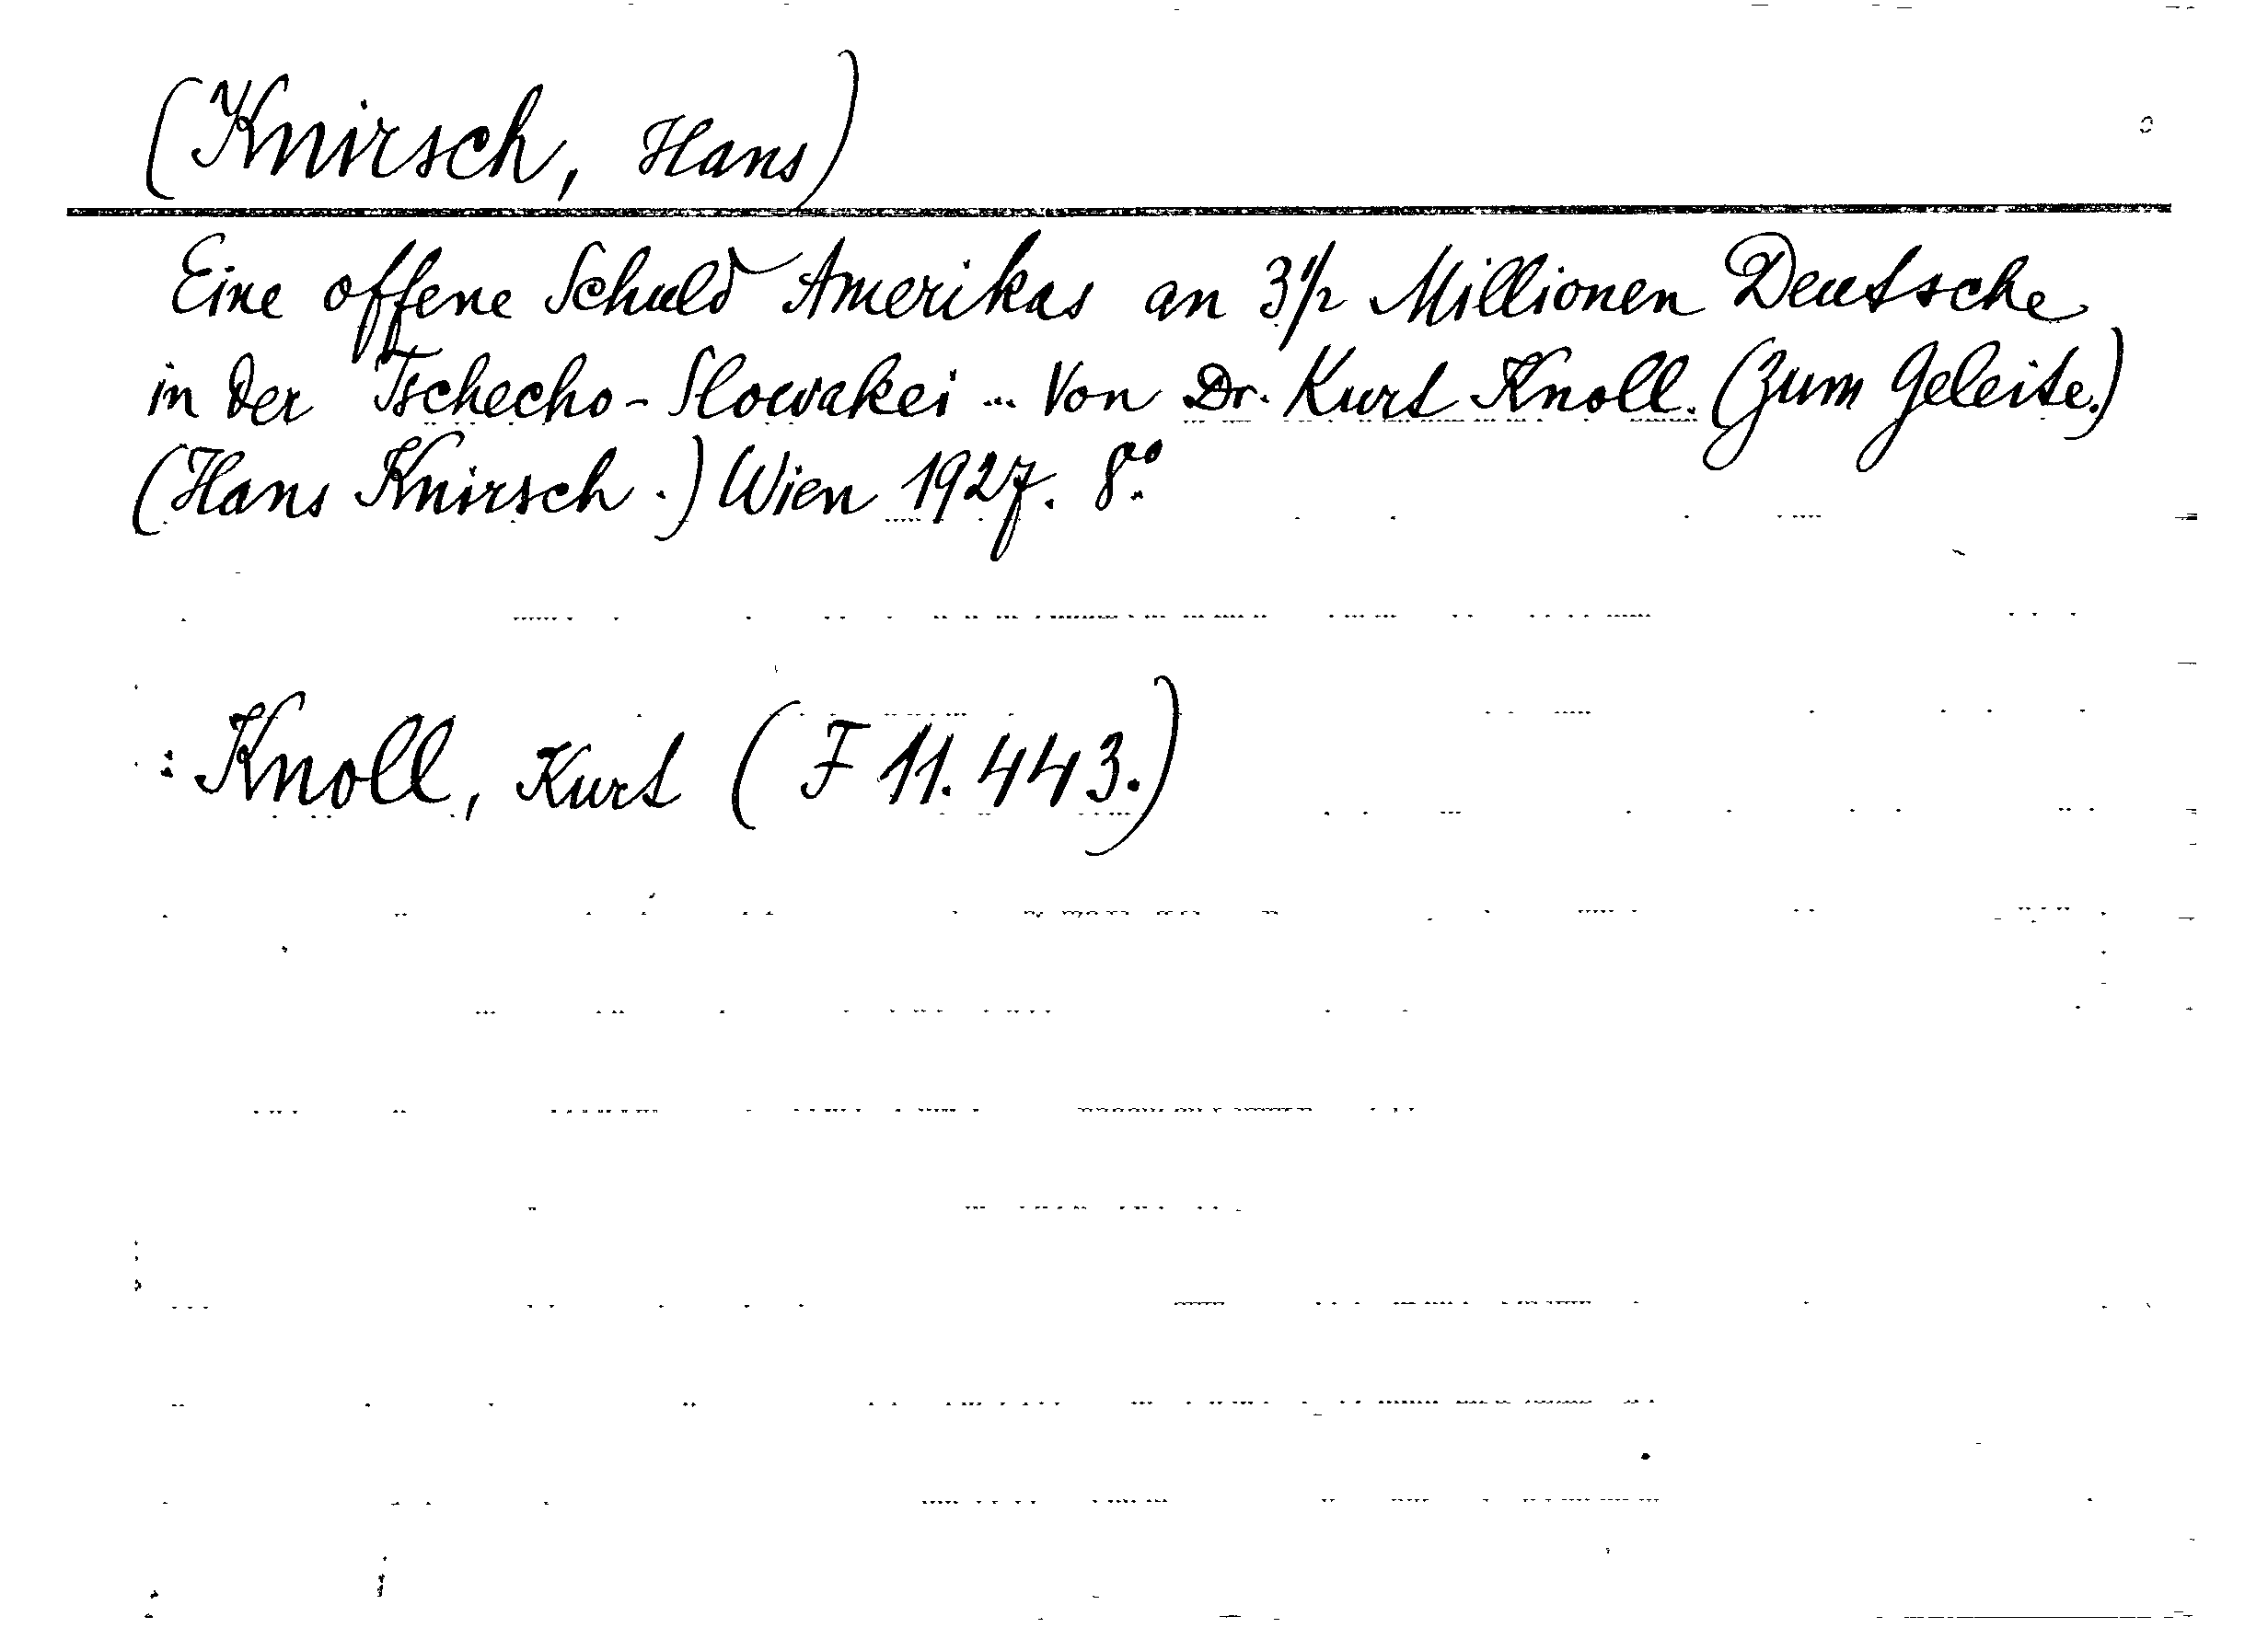 (Knirsch, Hans)
Eine offene Schuld Amerikas an 3 1/2 Millionen Deutsche
in der Tschecho-Slowakei ... Von Dr. Kurt Knoll. (Zum Geleite.)
(Hans Knirsch.) Wien 1927. 8°.
: Knoll, Kurt (F 11.443.)